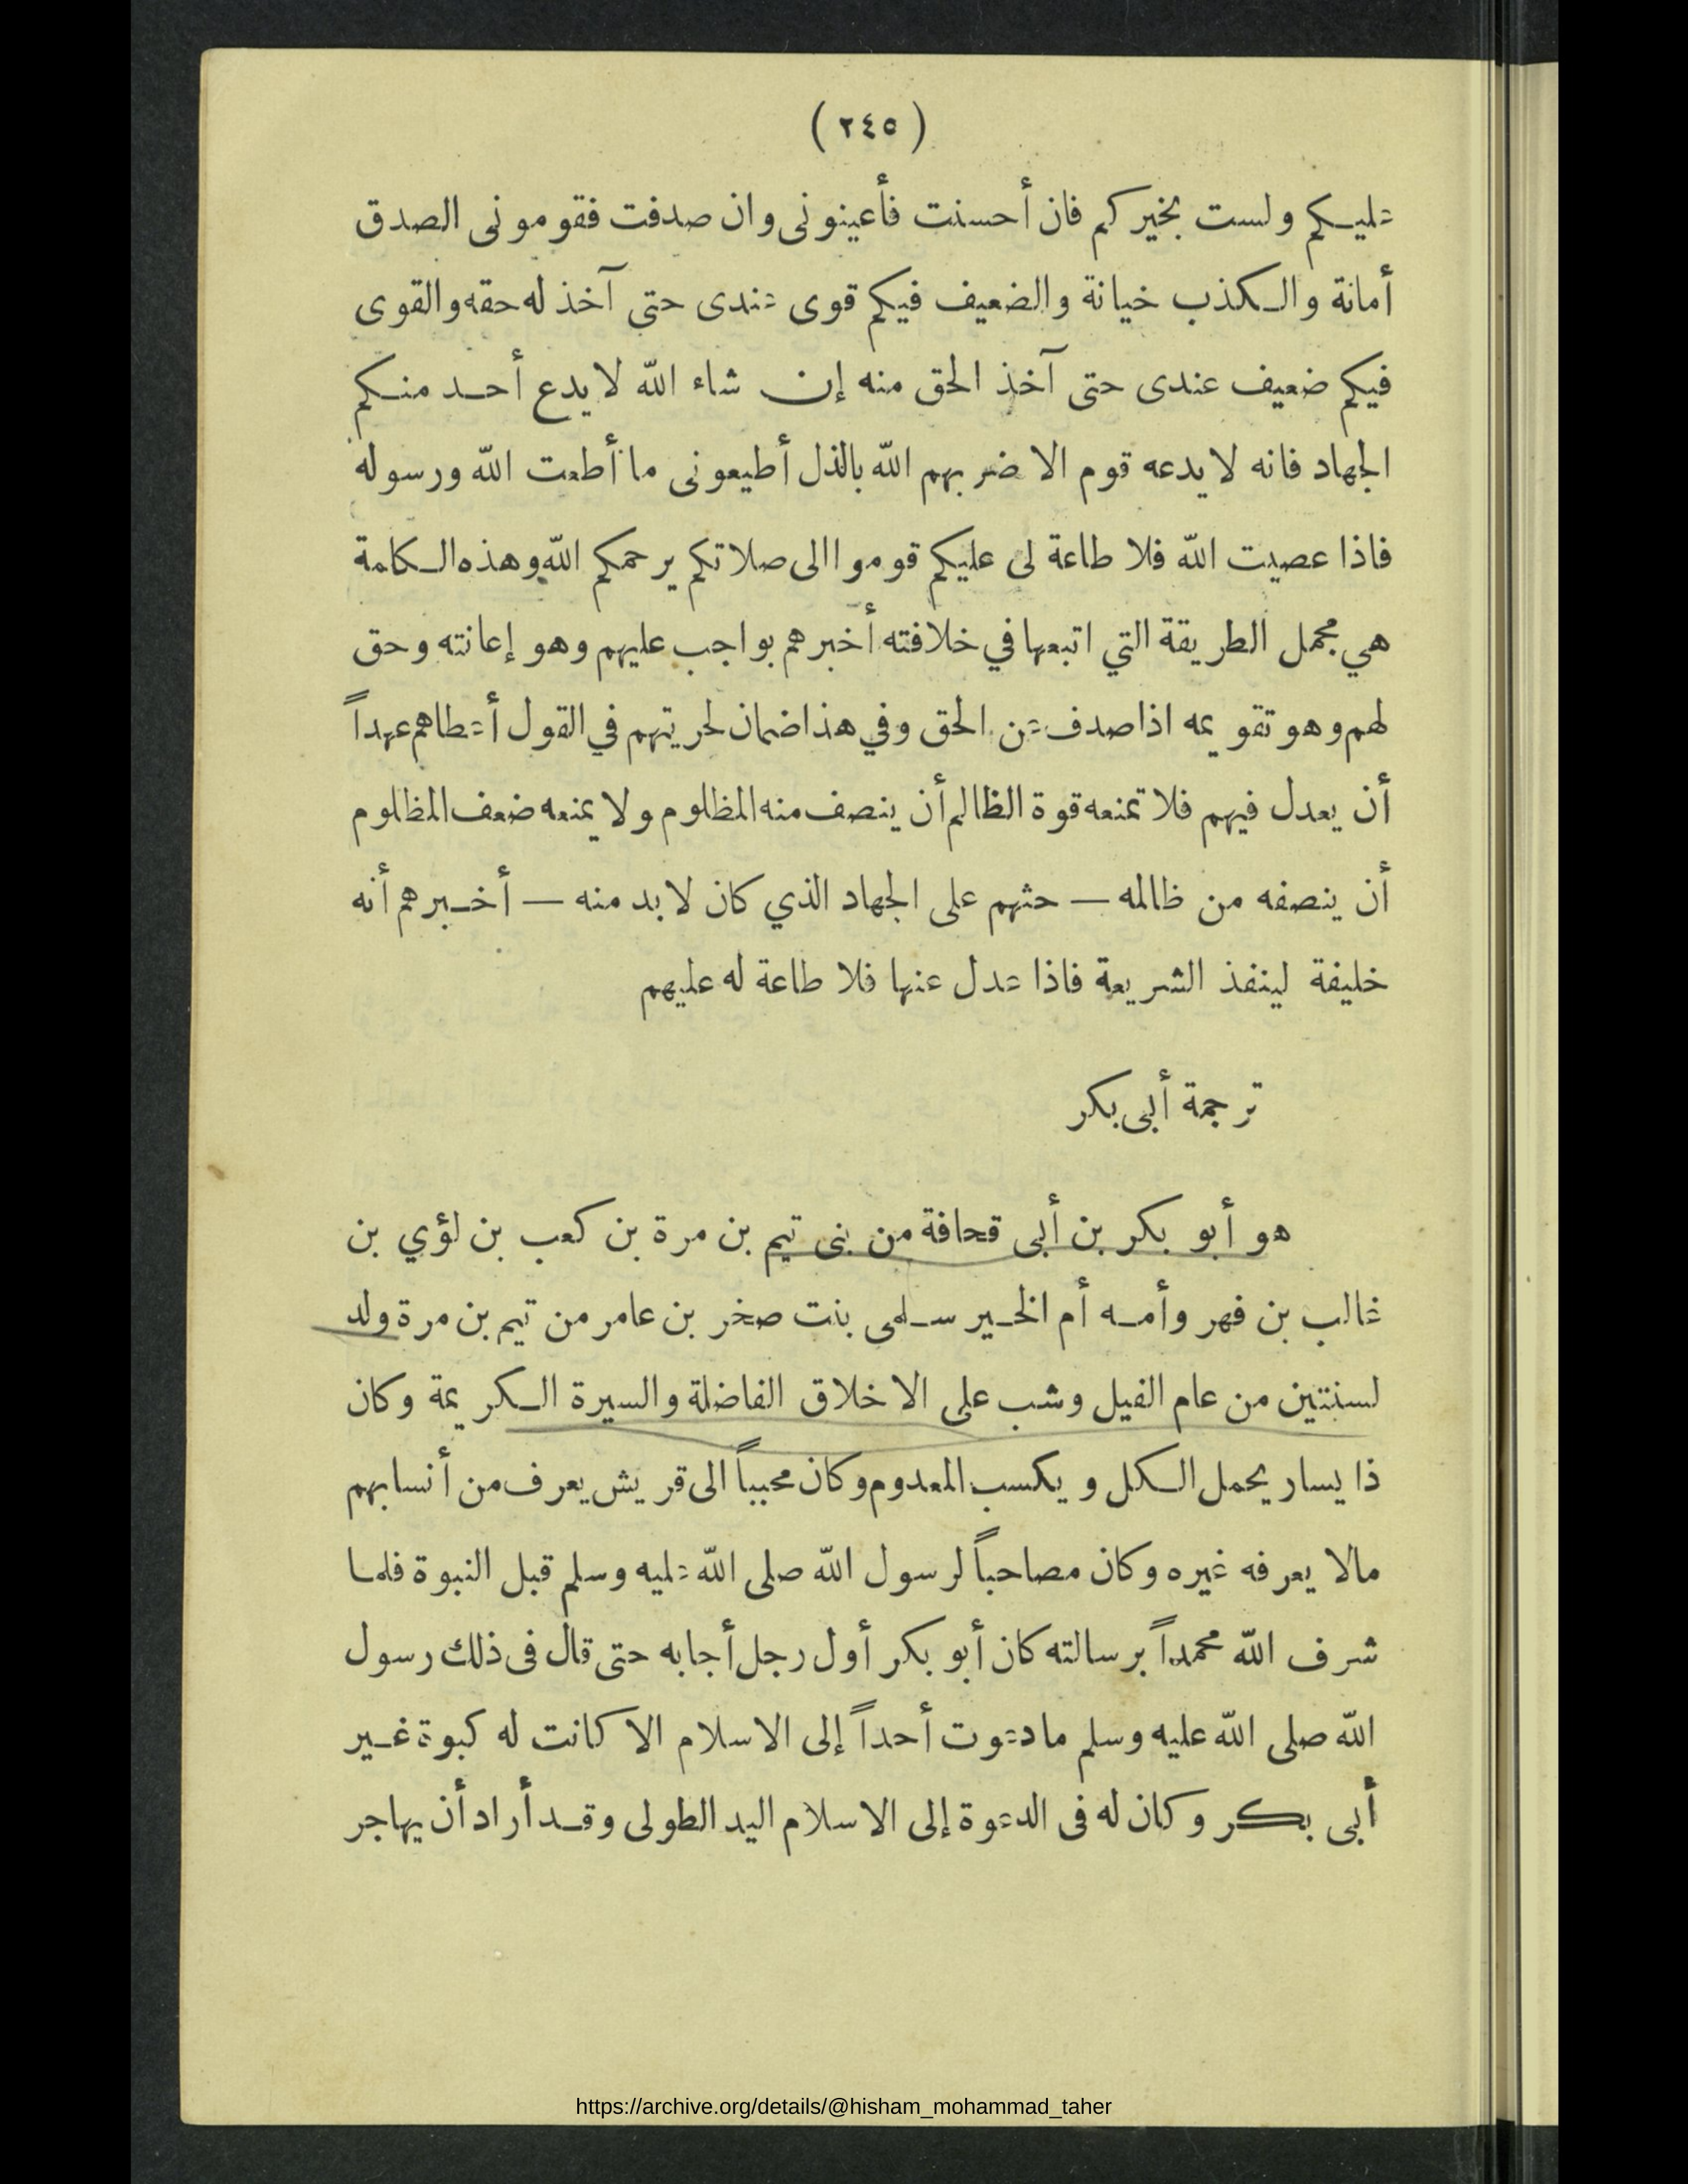 ( ٢٤٥ )
عليكم ولست بخيركم فان أحسنت فأعينونى وان صدفت فقومونى الصدق
أمانة والكذب خيانة والضعيف فيكم قوى عندى حتى آخذ له حقه والقوى
فيكم ضعيف عندى حتى آخذ الحق منه إن شاء الله لا يدع أحد منكم
الجهاد فانه لا يدعه قوم الا ضربهم الله بالذل أطيعونى ما أطعت الله ورسوله
فاذا عصيت الله فلا طاعة لى عليكم قوموا الى صلاتكم يرحمكم الله وهذه الكلمة
هي مجمل الطريقة التي اتبعها في خلافته أخبرهم بواجب عليهم وهو إعانته وحق
لهم وهو تقويمه اذا صدف عن الحق وفي هذا ضمان لحريتهم في القول أعطاهم عهداً
أن يعدل فيهم فلا تمنعه قوة الظالم أن ينصف منه المظلوم ولا يمنعه ضعف المظلوم
أن ينصفه من ظالمه — حثهم على الجهاد الذي كان لا بد منه — أخبرهم أنه
خليفة لينفذ الشريعة فاذا عدل عنها فلا طاعة له عليهم
ترجمة أبى بكر
هو أبو بكر بن أبى قحافة من بنى تيم بن مرة بن كعب بن لؤي بن
غالب بن فهر وأمه أم الخير سلمى بنت صخر بن عامر من تيم بن مرة ولد
لسنتين من عام الفيل وشب على الاخلاق الفاضلة والسيرة الكريمة وكان
ذا يسار يحمل الكل ويكسب المعدوم وكان محبباً الى قريش يعرف من أنسابهم
مالا يعرفه غيره وكان مصاحباً لرسول الله صلى الله عليه وسلم قبل النبوة فلما
شرف الله محمداً برسالته كان أبو بكر أول رجل أجابه حتى قال فى ذلك رسول
الله صلى الله عليه وسلم ما دعوت أحداً إلى الاسلام الا كانت له كبوة غير
أبى بكر وكان له فى الدعوة إلى الاسلام اليد الطولى وقد أراد أن يهاجر
https://archive.org/details/@hisham_mohammad_taher